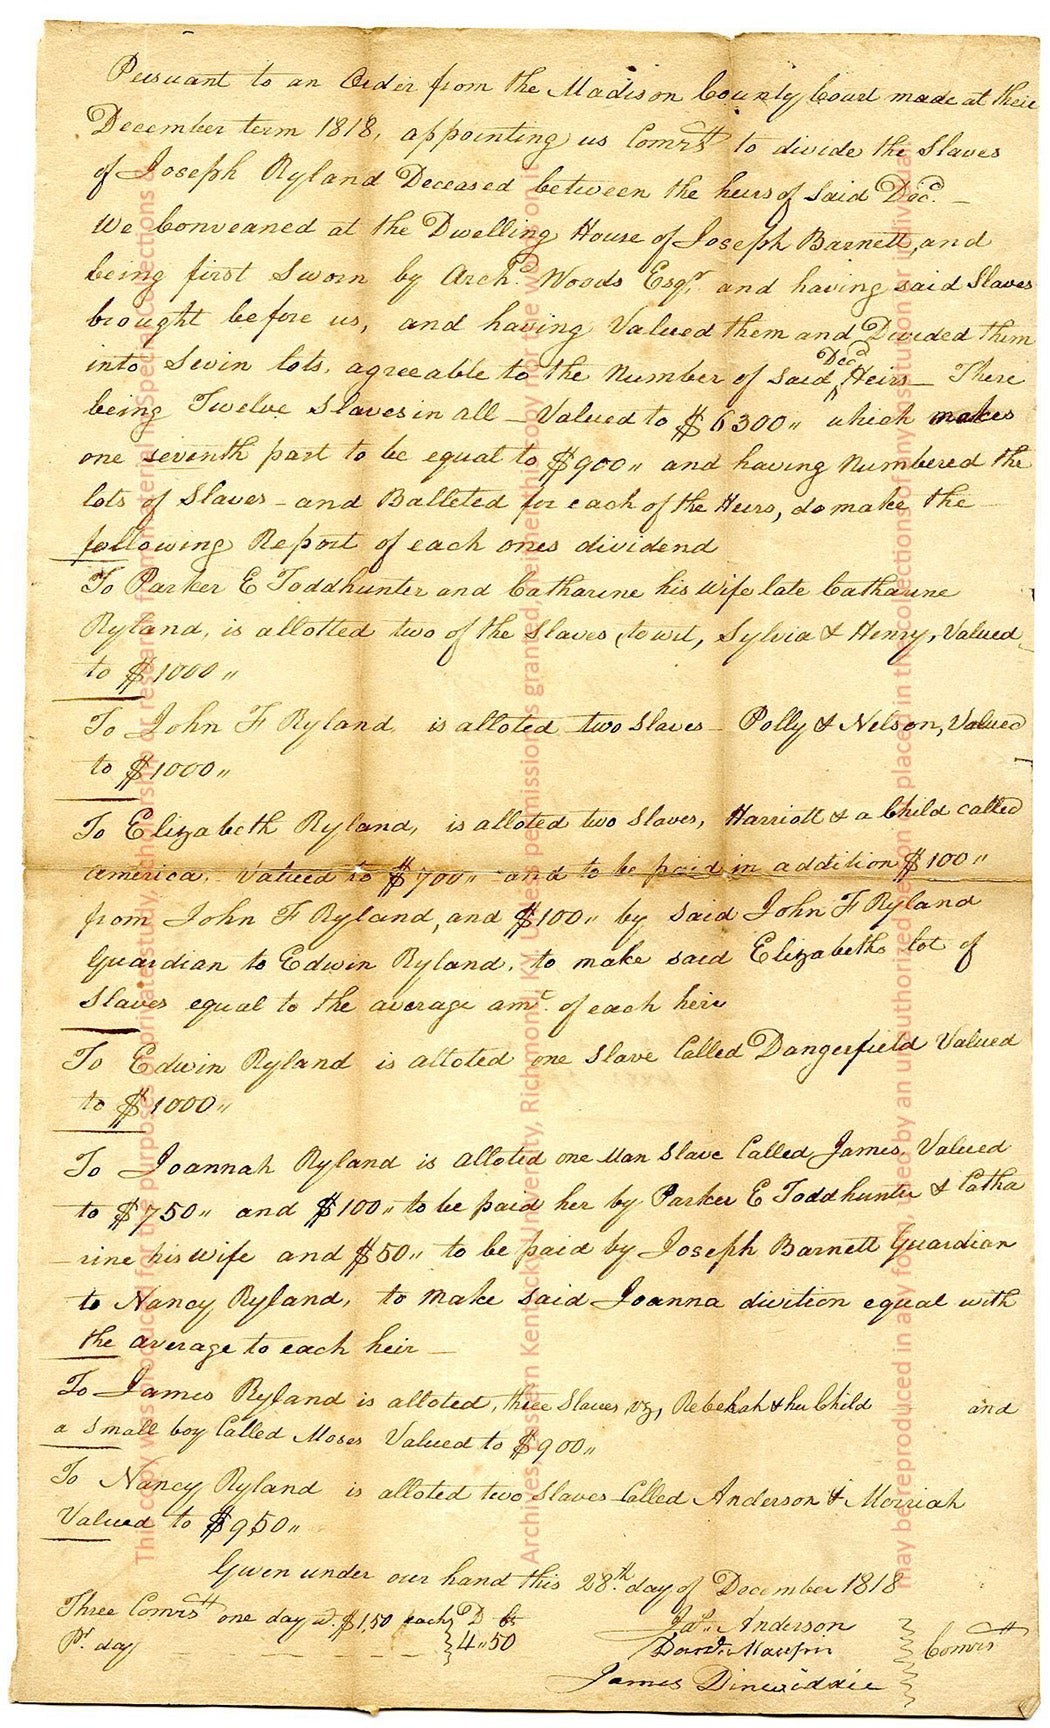 Pursuant to an Order from the Madison County Court made at their
December term 1818, appointing us Comrs to divide the Slaves
of Joseph Ryland Deceased between the heirs of Said Decd. –
We Conveaned at the Dwelling House of Joseph Barnett, and
being first Sworn by Archd. Woods Esqr. and having said Slaves
brought before us, and having Valued them and Divided them
into Sevin lots, agreeable to the Number of Said Decd Heirs – There
being Twelve Slaves in all – Valued to $6300,, which makes
one seventh part to be equal to $900,, and having Numbered the
lots of Slaves – and Balleted for each of the Heirs, do make the
following Report of each ones dividend
To Parker E Toddhunter and Catharine his Wife late Catharine
Ryland, is allotted two of the Slaves, towit, Sylvia & Henry, Valued
to $1000,,
To John F Ryland is alloted two Slaves – Polly & Nelson, Valued
to $1000,,
To Elizabeth Ryland, is alloted two Slaves, Harriott & a Child called
America, Valued to $700,, and to be paid in addition $100,,
from John F Ryland, and $100,, by Said John F Ryland
Guardian to Edwin Ryland, to make said Elizabeths lot of
Slaves equal to the average amt. of each heir
To Edwin Ryland is alloted one Slave Called Dangerfield Valued
to $1000,,
To Joannah Ryland is alloted one Man Slave Called James, Valued
to $750,, and $100,, to be paid her by Parker E Toddhunter & Catha
–rine his Wife and $50,, to be paid by Joseph Barnett Guardian
to Nancy Ryland, to make Said Joanna divition equal with
the average to each heir –
To James Ryland is alloted, three Slaves, vz, Rebekah & her Child and
a Small boy Called Moses Valued to $900,,
To Nancy Ryland is alloted two Slaves Called Anderson & Morriah
Valued to $950,,
Given under our hand this 28th day of December 1818
Three Comrs one day a. $1,50 each D Cts
Pr day – – – – – 4,,50
Jas. Anderson
David Maupin
James Dinwiddie
Comrs
This copy was produced for the purposes of private study, scholarship or research from material in Special Collections &
Archives, Eastern Kentucky University, Richmond, KY. Unless permission is granted, neither this copy nor the work on it
may be reproduced in any form, used by an unauthorized person, placed in the collections of any institution or individual.